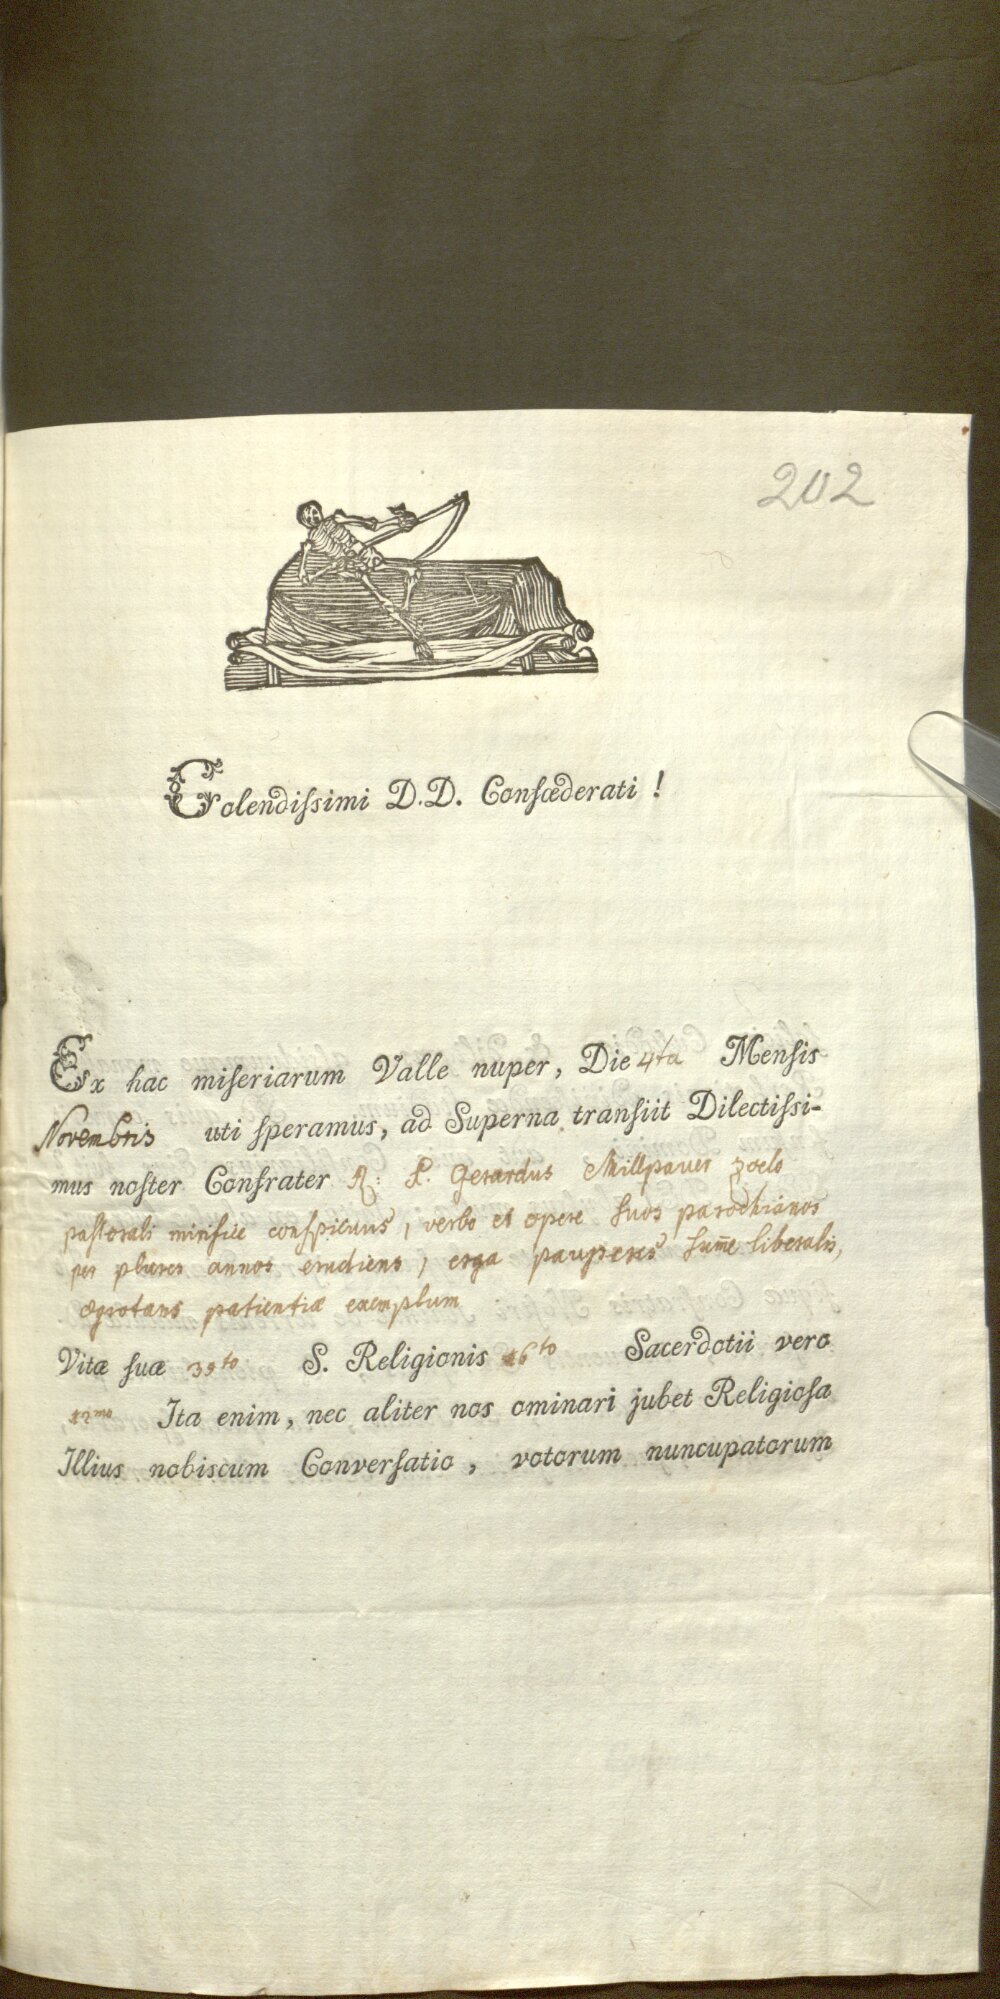 202
Colendiſsimi D.D. Confœderati !
Ex hac miſeriarum Valle nuper, Die 4ta Menſis
Novembris uti ſperamus, ad Superna tranſiit Dilectiſsi-
mus noſter Confrater R. P. Gerardus Millpauer zoelo
paſtorali mirifice conſpicuus, verbo et opere ſuos parochianos
per plures annos erudiens, erga pauperes ſum̄e liberalis,
ægrotans patientiæ exemplum
Vitæ ſuæ 39to S. Religionis 16to Sacerdotii vero
12mo Ita enim, nec aliter nos ominari jubet Religioſa
Illius nobiscum Converſatio, votorum nuncupatorum